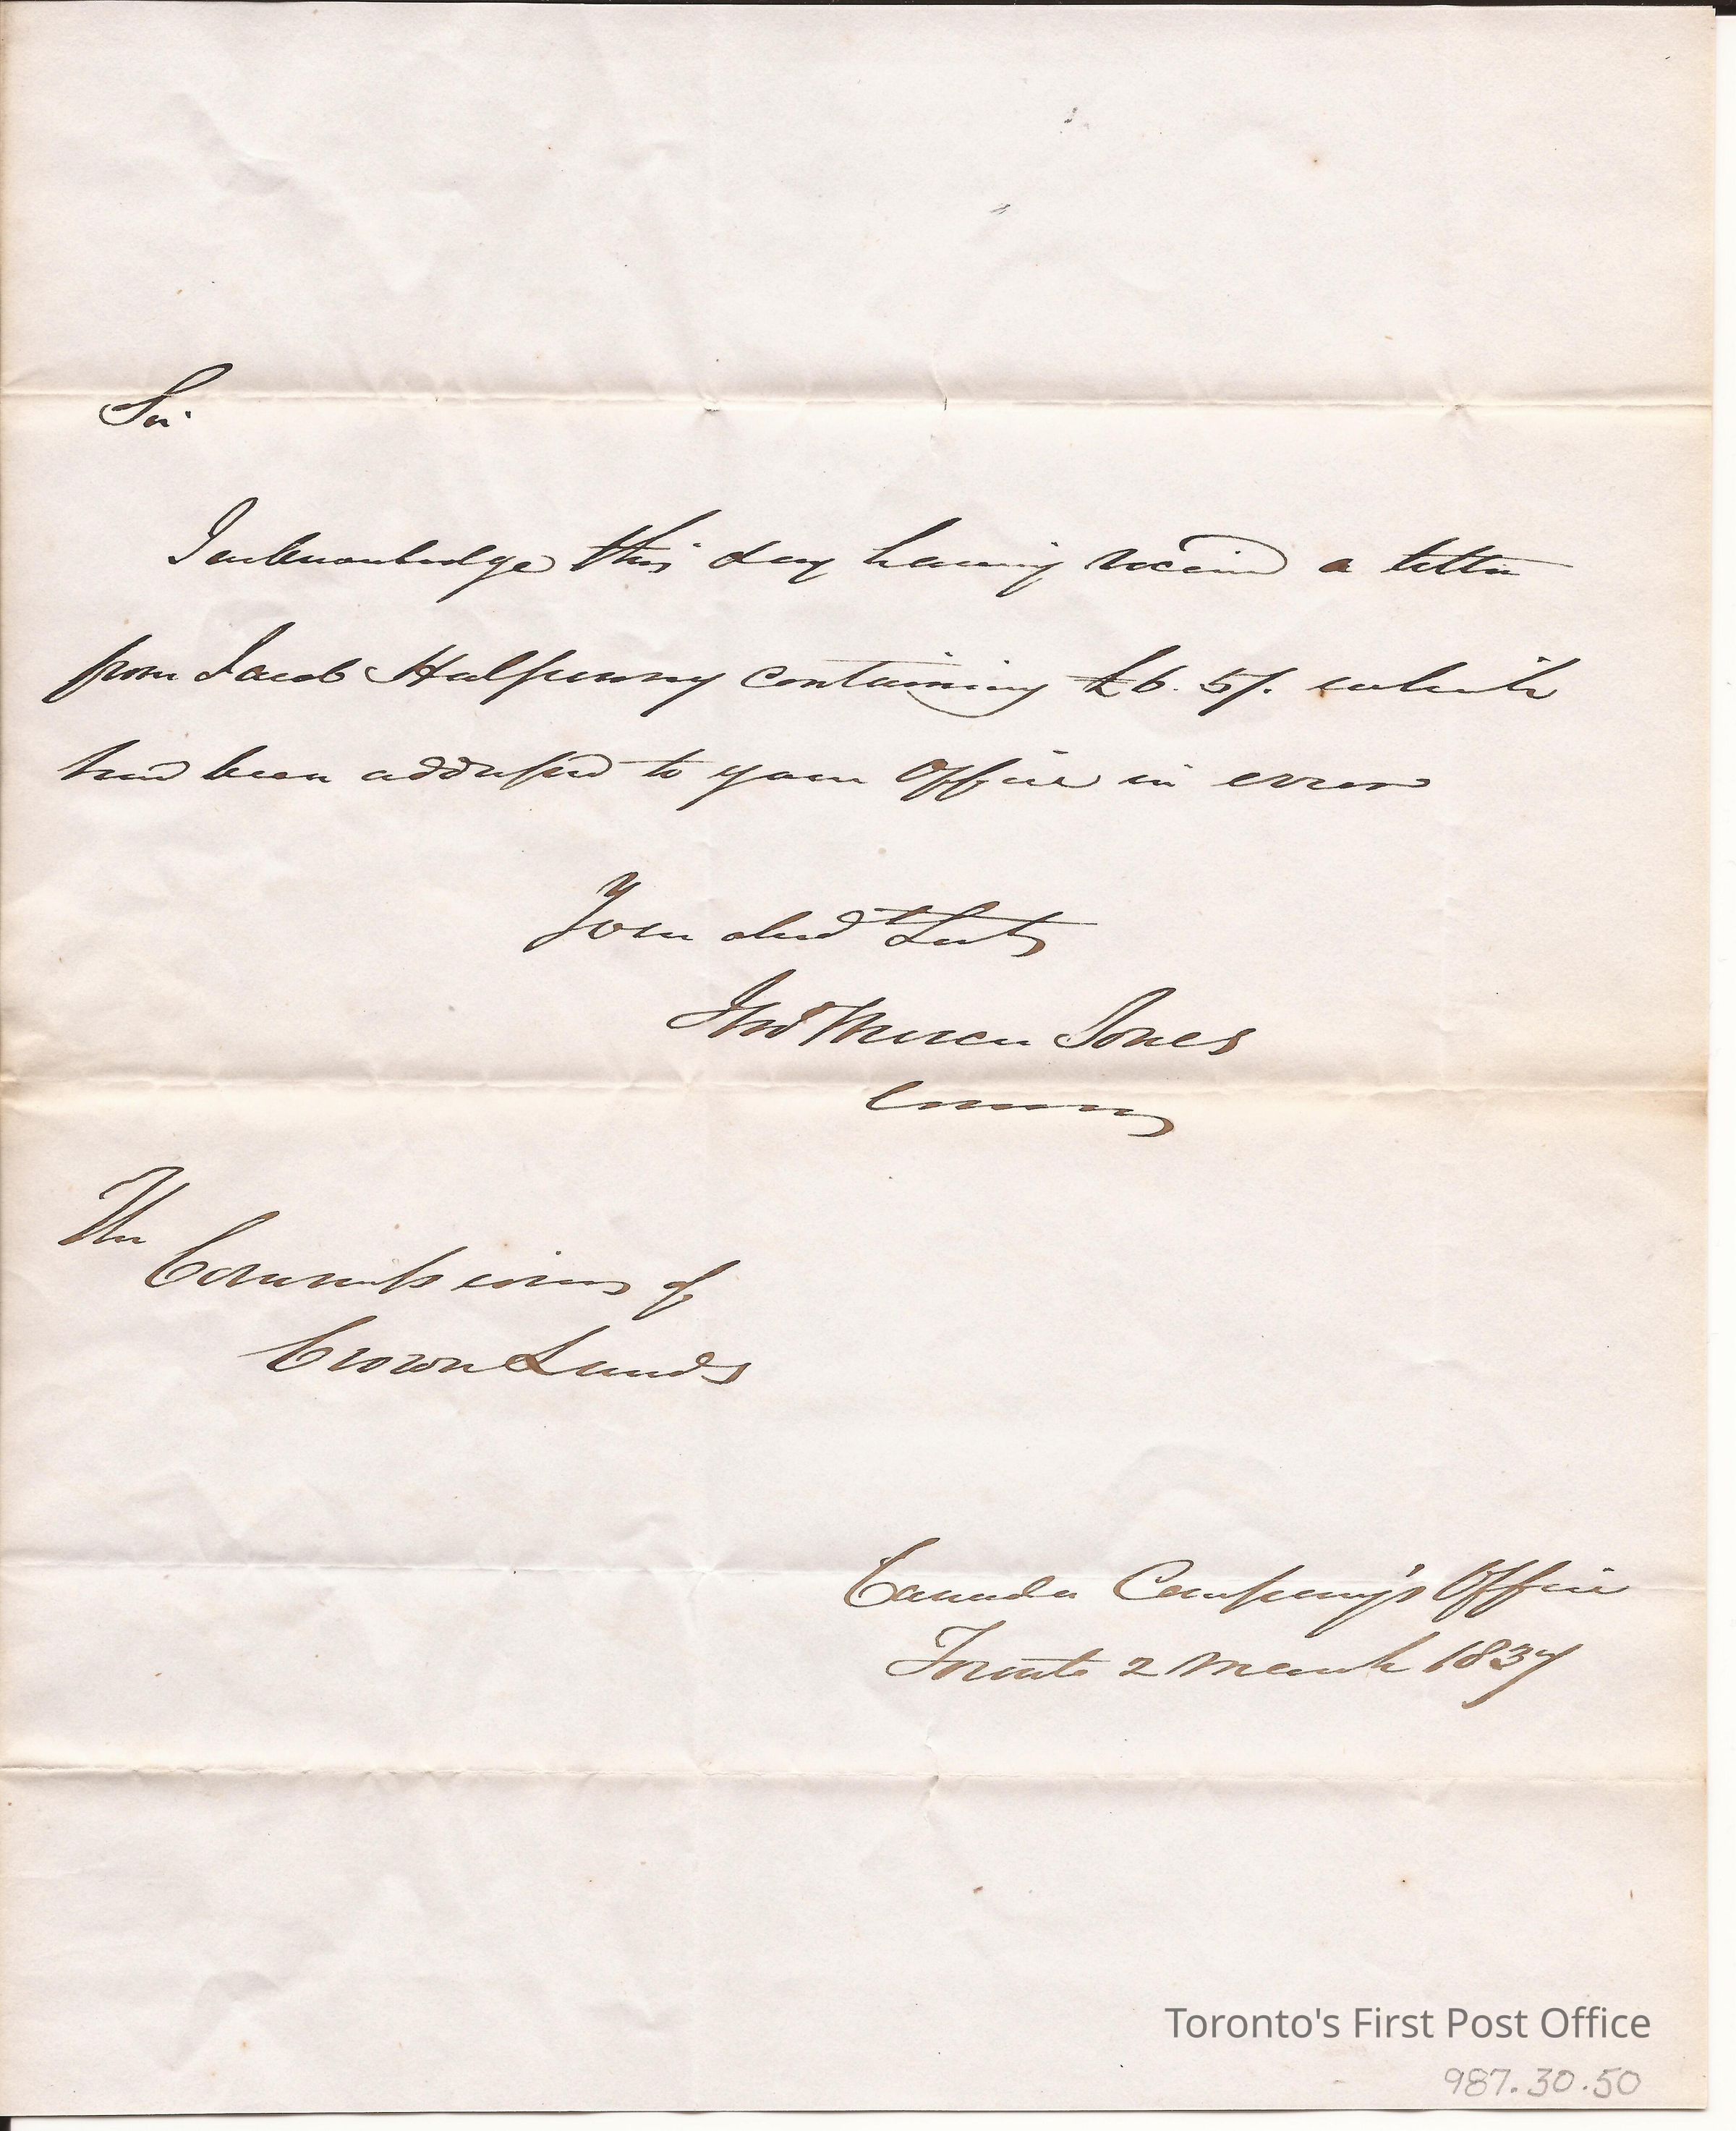 Sir
I acknowledge this day having received a letter
from Jacob Halfpenny containing £6. 5/. which
had been addressed to your Office in error
Your obed^t Serv^t
Tho^s Mercer Jones
Commr
The
Commissioner of
Crown Lands
Canada Company's Office
Toronto 2 March 1837
Toronto's First Post Office
987.30.50